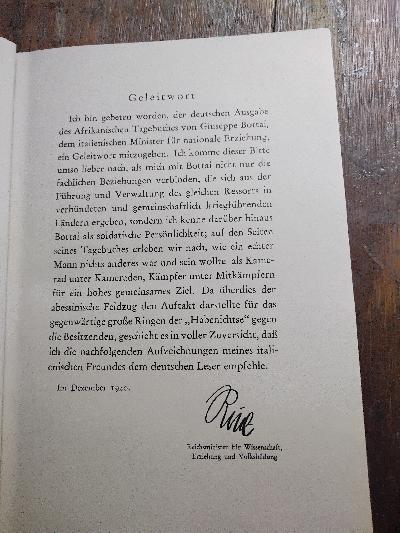 Geleitwort
Ich bin gebeten worden, der deutschen Ausgabe
des Afrikanischen Tagebuches von Giuseppe Bottai,
dem italienischen Minister für nationale Erziehung,
ein Geleitwort mitzugeben. Ich komme dieser Bitte
umso lieber nach, als mich mit Bottai nicht nur die
fachlichen Beziehungen verbinden, die sich aus der
Führung und Verwaltung des gleichen Ressorts in
verbündeten und gemeinschaftlich kriegführenden
Ländern ergeben, sondern ich kenne darüber hinaus
Bottai als soldatische Persönlichkeit; auf den Seiten
seines Tagebuches erleben wir nach, wie ein echter
Mann nichts anderes war und sein wollte als Kame-
rad unter Kameraden, Kämpfer unter Mitkämpfern
für ein hohes gemeinsames Ziel. Da überdies der
abessinische Feldzug den Auftakt darstellte für das
gegenwärtige große Ringen der „Habenichtse“ gegen
die Besitzenden, geschieht es in voller Zuversicht, daß
ich die nachfolgenden Aufzeichnungen meines itali-
enischen Freundes dem deutschen Leser empfehle.
Im Dezember 1940.
Reichsminister für Wissenschaft,
Erziehung und Volksbildung